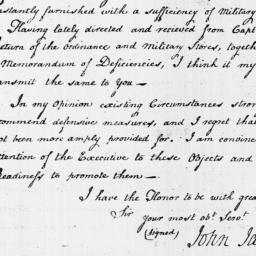 stantly furnished with a sufficiency of Military
Having lately directed and recieved from Capt
Return of the ordinance and Military Stores, togeth
Memorandum of Deficiencies, I think it my
ansmit the same to you—
In my Opinion existing Circumstances stron
commend defensive measures, and I regret that
not been more amply provided for. I am convinc
attention of the Executive to these Objects and
Readiness to promote them—
I have the Honor to be with grea
Sir
your most obt. Servt.
(signed) John Ja